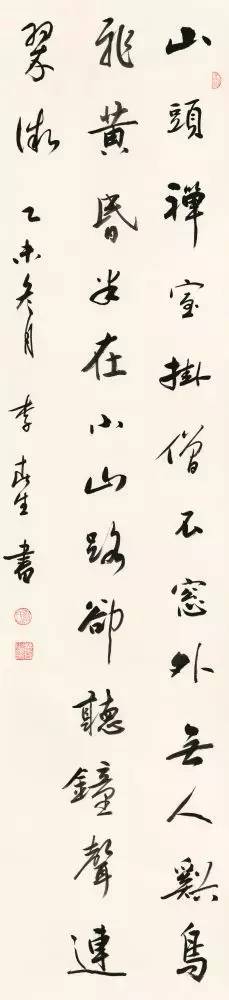 山頭禪室掛僧衣窓外無人谿鳥
飛黃昏半在下山路卻聽鐘聲連
翠微 乙未冬月 李生書